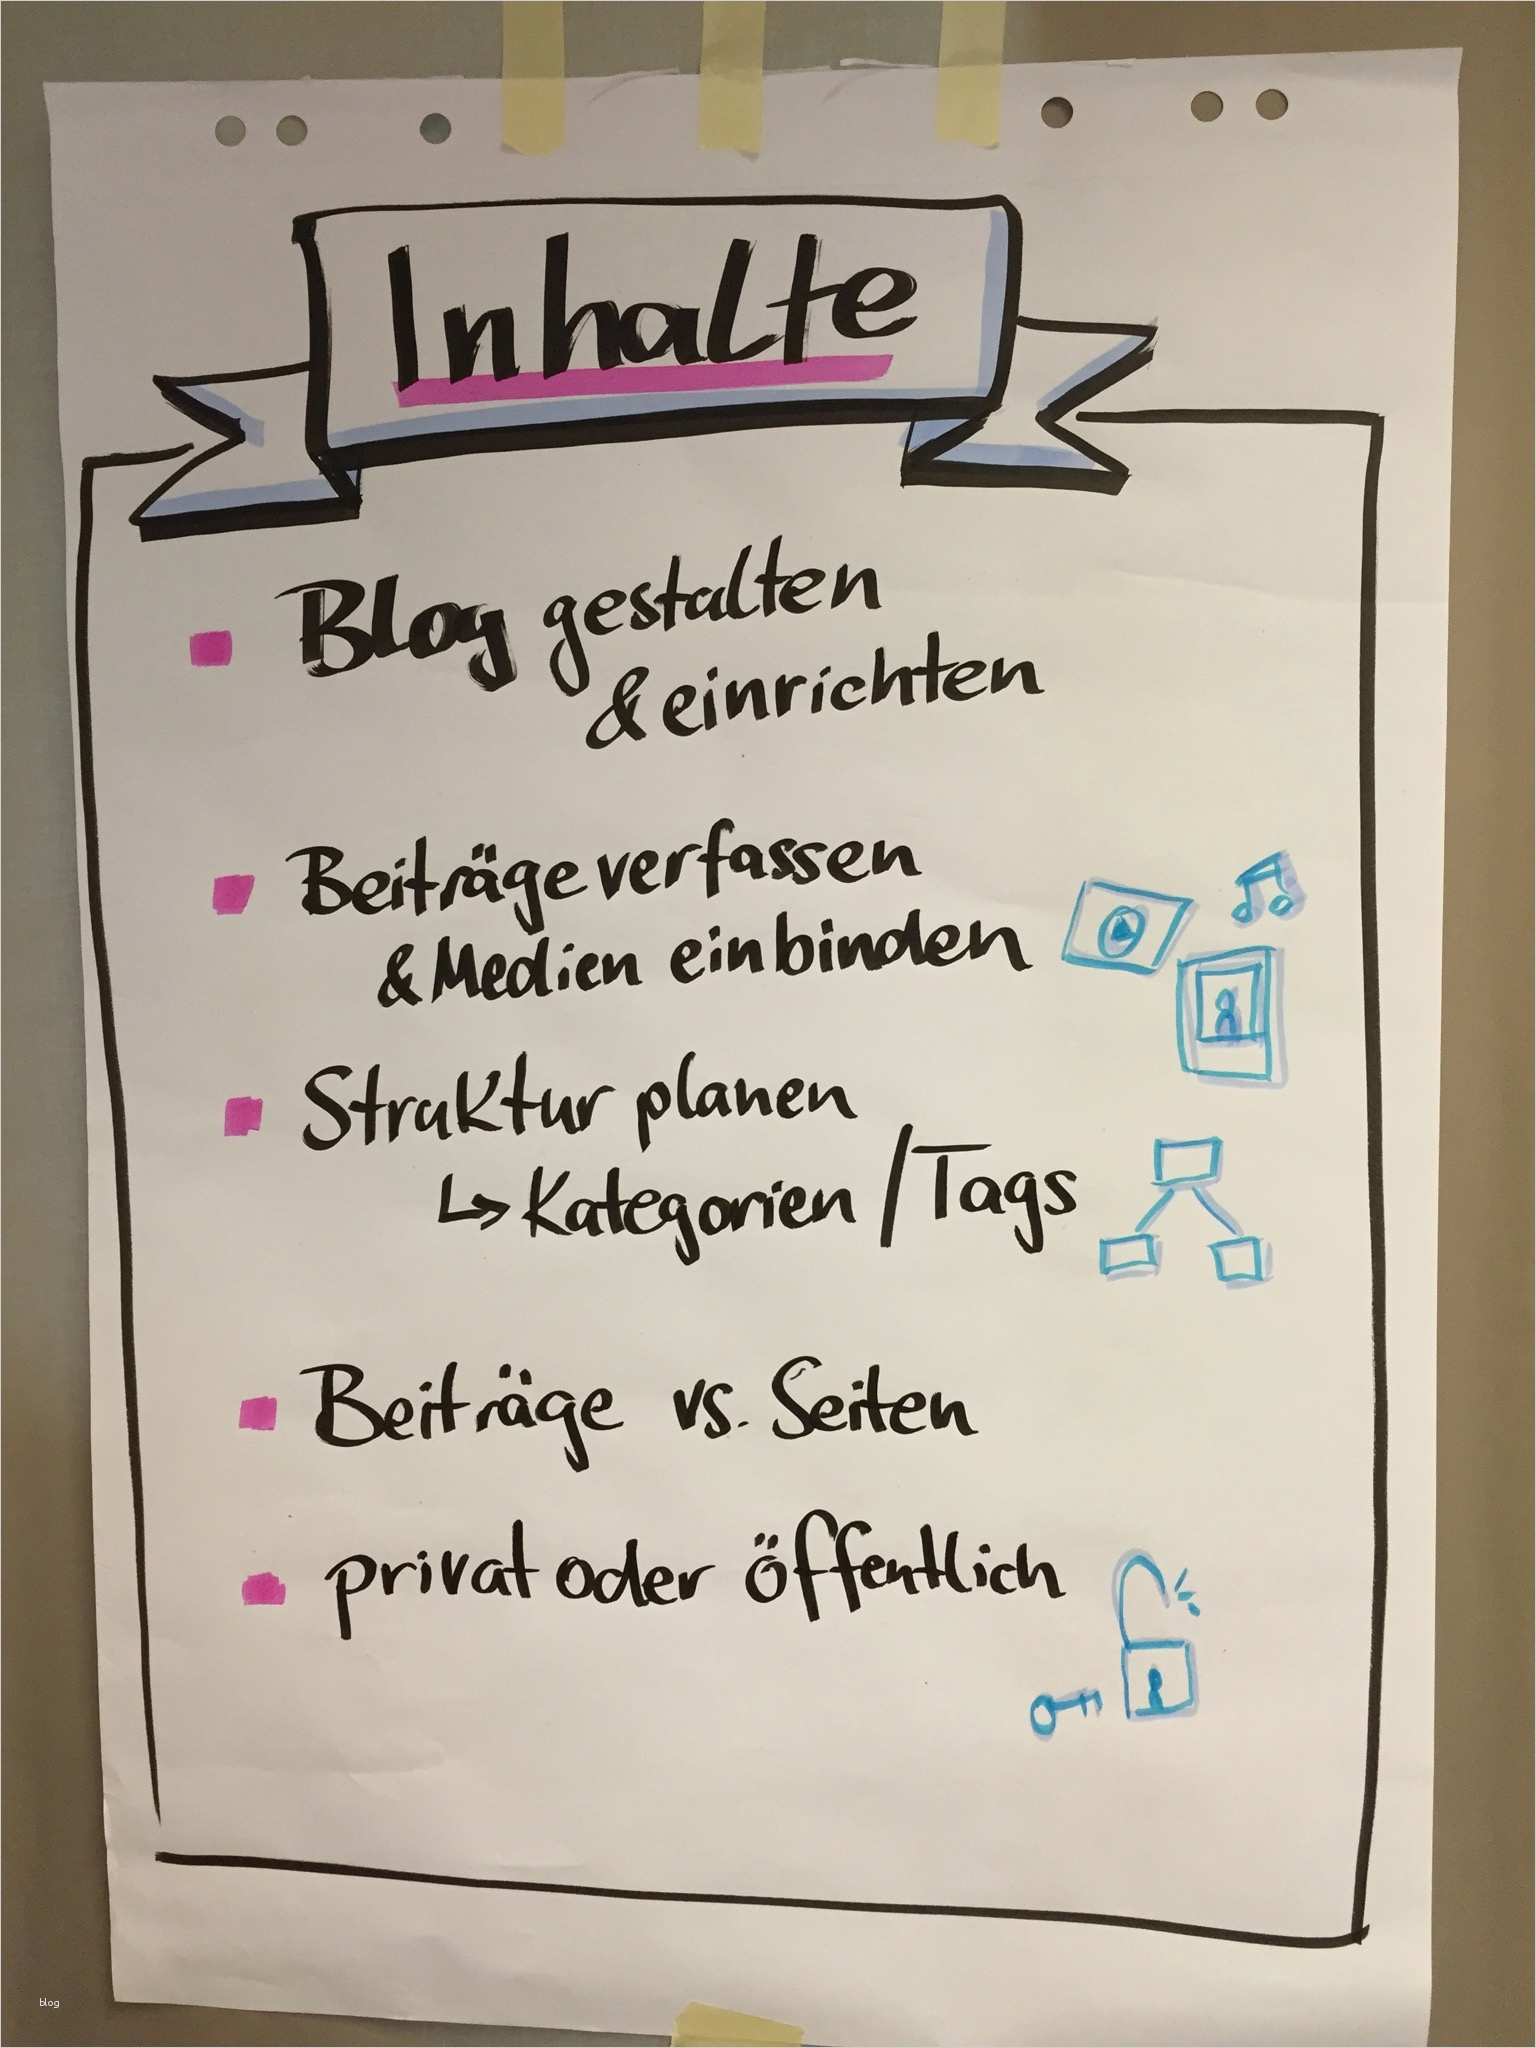 Inhalte
Blog gestalten
& einrichten
Beiträge verfassen
& Medien einbinden
Struktur planen
↳ Kategorien / Tags
Beiträge vs. Seiten
privat oder öffentlich
blog